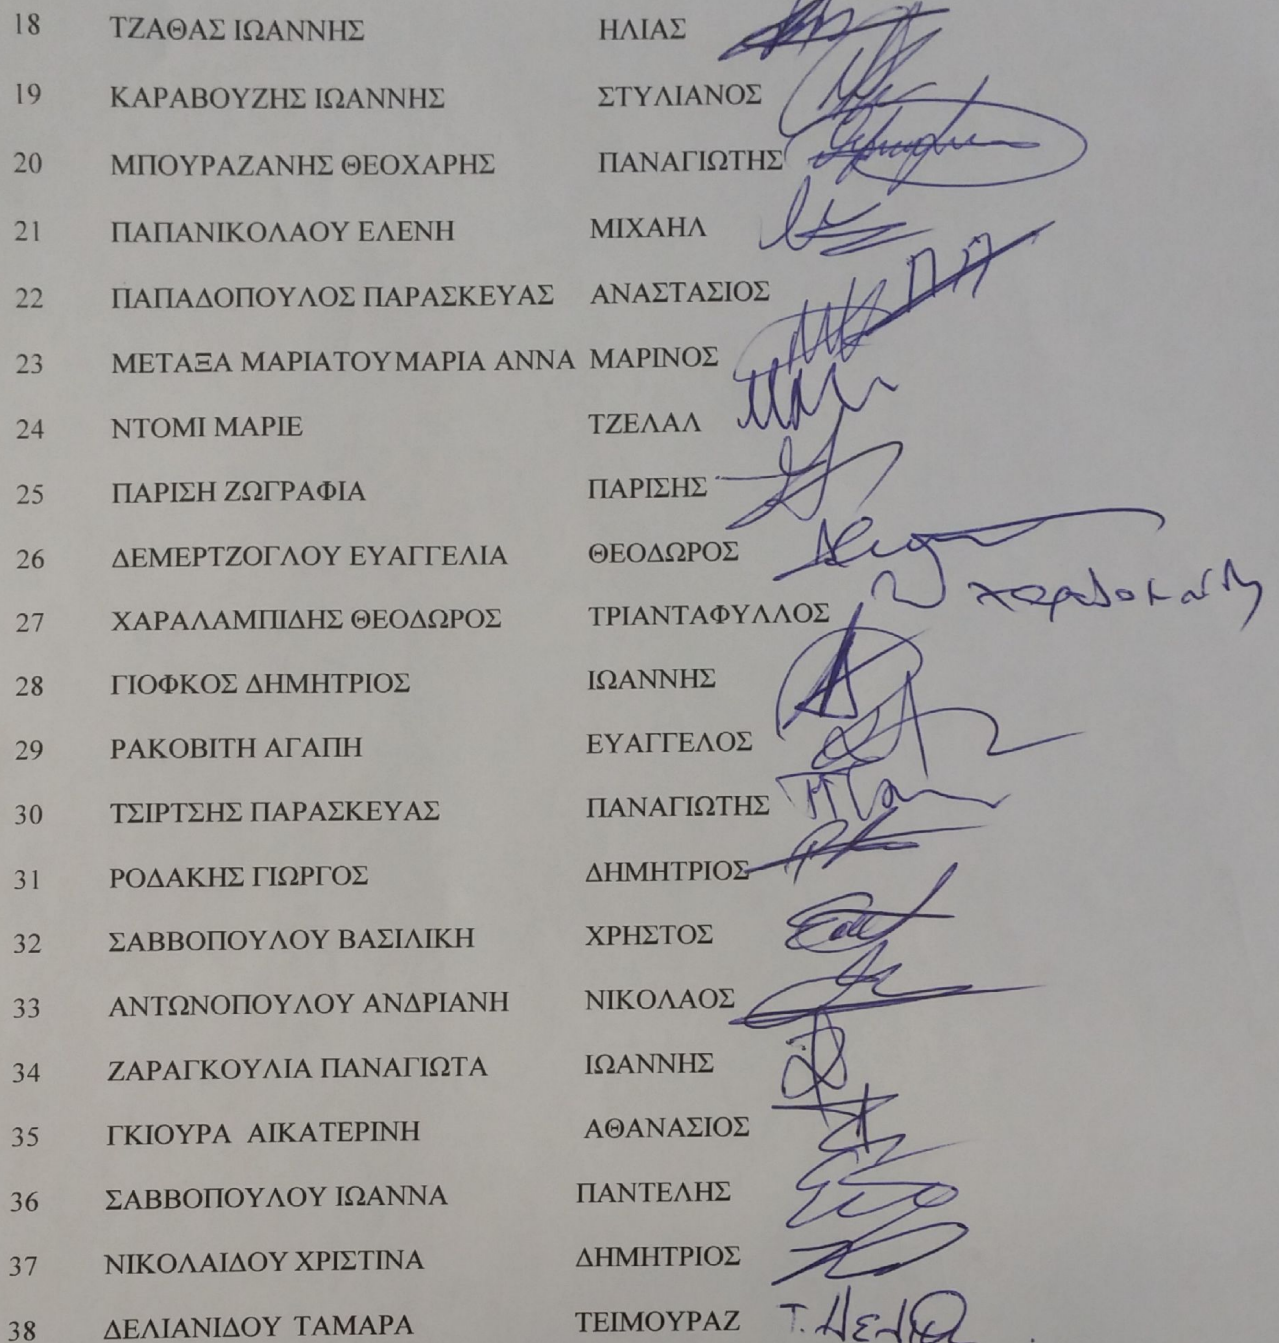 18 ΤΖΑΘΑΣ ΙΩΑΝΝΗΣ ΗΛΙΑΣ
19 ΚΑΡΑΒΟΥΖΗΣ ΙΩΑΝΝΗΣ ΣΤΥΛΙΑΝΟΣ
20 ΜΠΟΥΡΑΖΑΝΗΣ ΘΕΟΧΑΡΗΣ ΠΑΝΑΓΙΩΤΗΣ
21 ΠΑΠΑΝΙΚΟΛΑΟΥ ΕΛΕΝΗ ΜΙΧΑΗΛ
22 ΠΑΠΑΔΟΠΟΥΛΟΣ ΠΑΡΑΣΚΕΥΑΣ ΑΝΑΣΤΑΣΙΟΣ
23 ΜΕΤΑΞΑ ΜΑΡΙΑΤΟΥ ΜΑΡΙΑ ΑΝΝΑ ΜΑΡΙΝΟΣ
24 ΝΤΟΜΙ ΜΑΡΙΕ ΤΖΕΛΑΛ
25 ΠΑΡΙΣΗ ΖΩΓΡΑΦΙΑ ΠΑΡΙΣΗΣ
26 ΔΕΜΕΡΤΖΟΓΛΟΥ ΕΥΑΓΓΕΛΙΑ ΘΕΟΔΩΡΟΣ
27 ΧΑΡΑΛΑΜΠΙΔΗΣ ΘΕΟΔΩΡΟΣ ΤΡΙΑΝΤΑΦΥΛΛΟΣ
28 ΓΙΟΦΚΟΣ ΔΗΜΗΤΡΙΟΣ ΙΩΑΝΝΗΣ
29 ΡΑΚΟΒΙΤΗ ΑΓΑΠΗ ΕΥΑΓΓΕΛΟΣ
30 ΤΣΙΡΤΣΗΣ ΠΑΡΑΣΚΕΥΑΣ ΠΑΝΑΓΙΩΤΗΣ
31 ΡΟΔΑΚΗΣ ΓΙΩΡΓΟΣ ΔΗΜΗΤΡΙΟΣ
32 ΣΑΒΒΟΠΟΥΛΟΥ ΒΑΣΙΛΙΚΗ ΧΡΗΣΤΟΣ
33 ΑΝΤΩΝΟΠΟΥΛΟΥ ΑΝΔΡΙΑΝΗ ΝΙΚΟΛΑΟΣ
34 ΖΑΡΑΓΚΟΥΛΙΑ ΠΑΝΑΓΙΩΤΑ ΙΩΑΝΝΗΣ
35 ΓΚΙΟΥΡΑ ΑΙΚΑΤΕΡΙΝΗ ΑΘΑΝΑΣΙΟΣ
36 ΣΑΒΒΟΠΟΥΛΟΥ ΙΩΑΝΝΑ ΠΑΝΤΕΛΗΣ
37 ΝΙΚΟΛΑΙΔΟΥ ΧΡΙΣΤΙΝΑ ΔΗΜΗΤΡΙΟΣ
38 ΔΕΛΙΑΝΙΔΟΥ ΤΑΜΑΡΑ ΤΕΙΜΟΥΡΑΖ